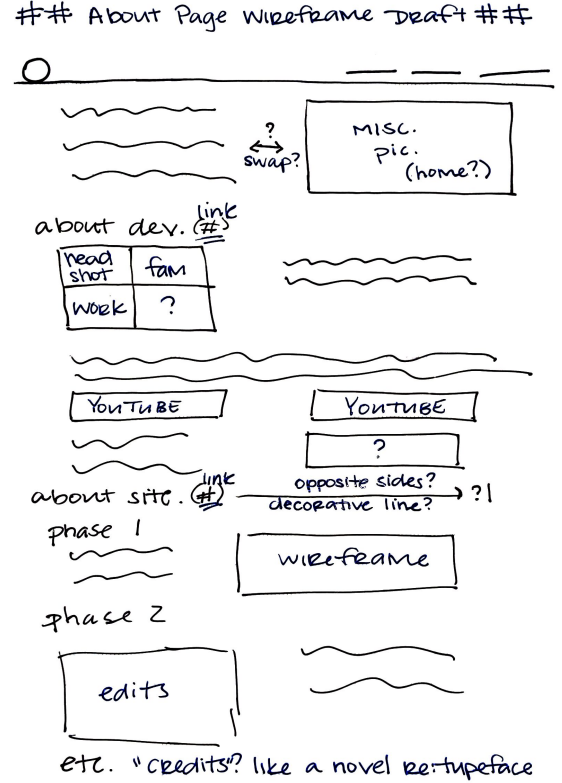 ## About Page Wireframe Draft ##
?
swap?
MISC.
pic.
(home?)
link
about dev. (#)
head shot
fam
work
?
YouTube
YouTube
?
link
about site. (#)
opposite sides?
decorative line?
?!
phase 1
wireframe
phase 2
edits
etc. "credits"? like a novel re:typeface